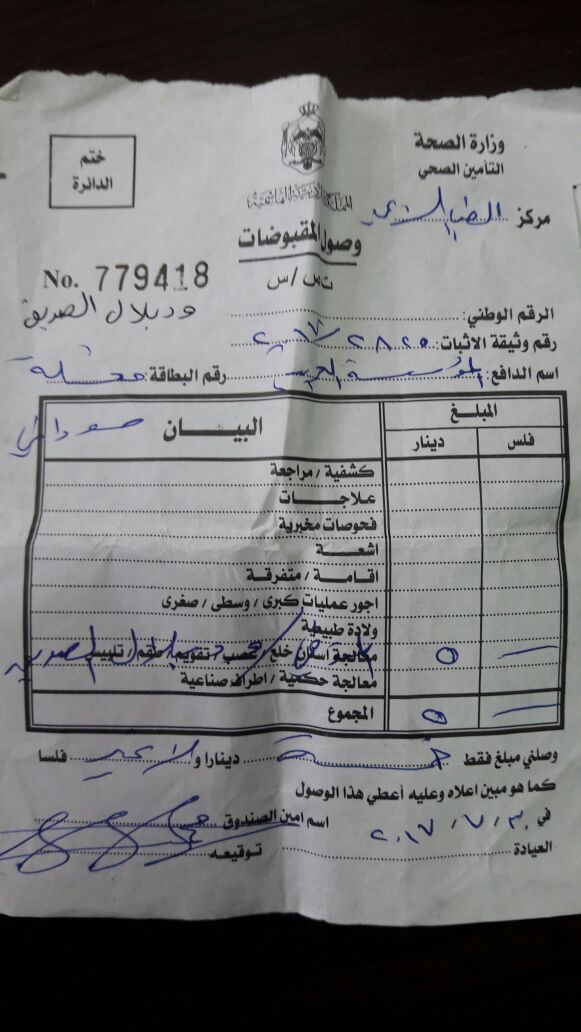 وزارة الصحة
التأمين الصحي
ختم الدائرة
المملكة الأردنية الهاشمية
مركز
وصول المقبوضات
No. 779418
الرقم الوطني:
ود بلال الصديق
رقم وثيقة الاثبات:
اسم الدافع: رقم البطاقة:
المبلغ
البيـــان
فلس دينار
كشفية / مراجعة
علاجـــات
فحوصات مخبرية
اشعـــة
اقامـة / متفرقـة
اجور عمليات كبرى / وسطى / صغرى
ولادة طبيعية
معالجة اسنان خلع / عصب / تقويم / طقم / تلبيس
٥
معالجة حكمية / اطراف صناعية
المجموع ٥
وصلني مبلغ فقط خمسة دينارا و لا غير فلسا
كما هو مبين اعلاه وعليه أعطي هذا الوصول
في ٣٠ / ٧ / ٢٠١٧ اسم امين الصندوق
العيادة توقيعه